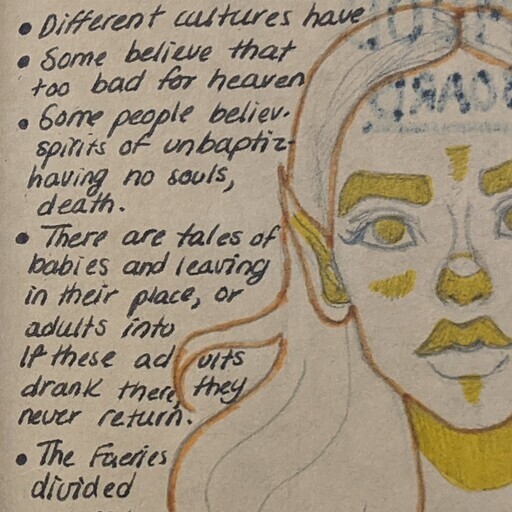 • Different cultures have
• Some believe that
too bad for heaven
• Some people believ.
spirits of unbaptiz-
having no souls,
death.
• There are tales of
babies and leaving
in their place, or
adults into
If these adults
drank there, they
never return.
• The Faeries
divided